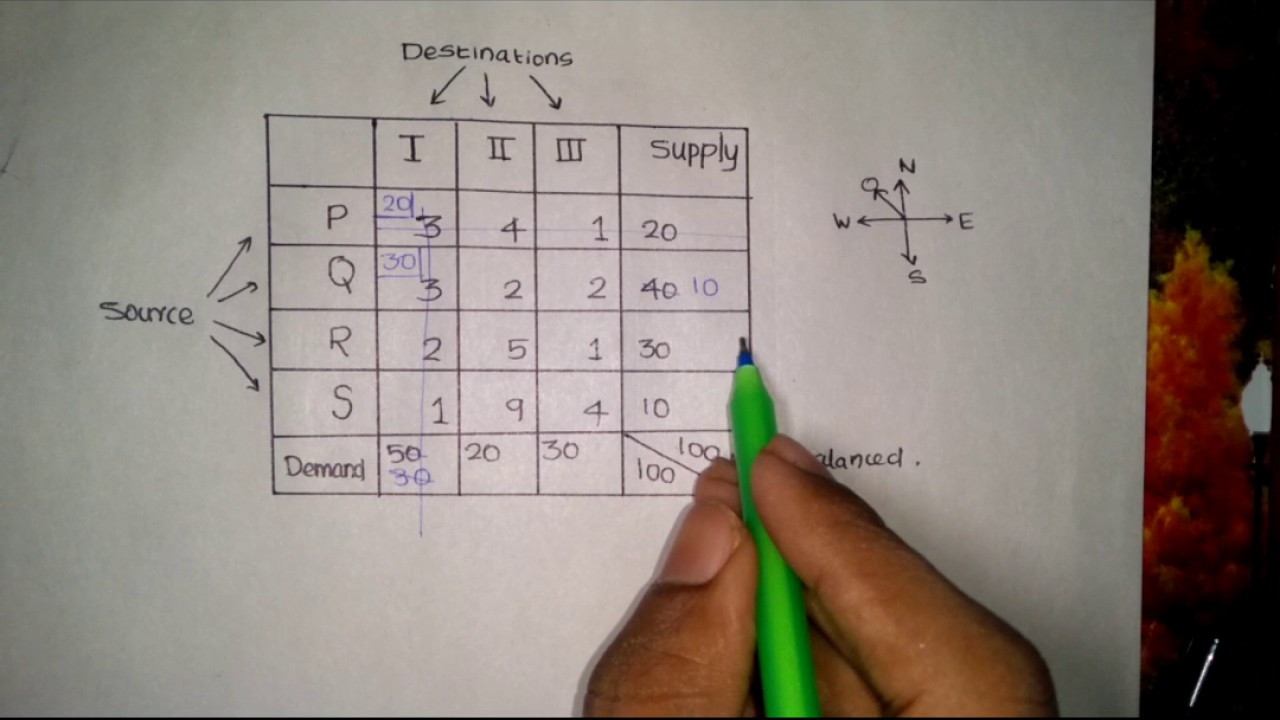 Destinations
I II III Supply
P 20 3 4 1 20
Q 30 3 2 2 40 10
R 2 5 1 30
S 1 9 4 10
Demand 50 20 30 100
30 100
Source
N
W E
S
alanced.